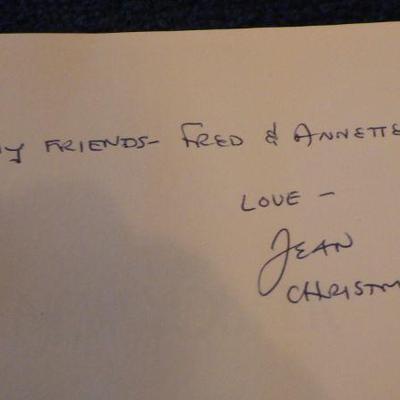 MY FRIENDS - FRED & ANNETTE
LOVE -
JEAN
CHRISTM